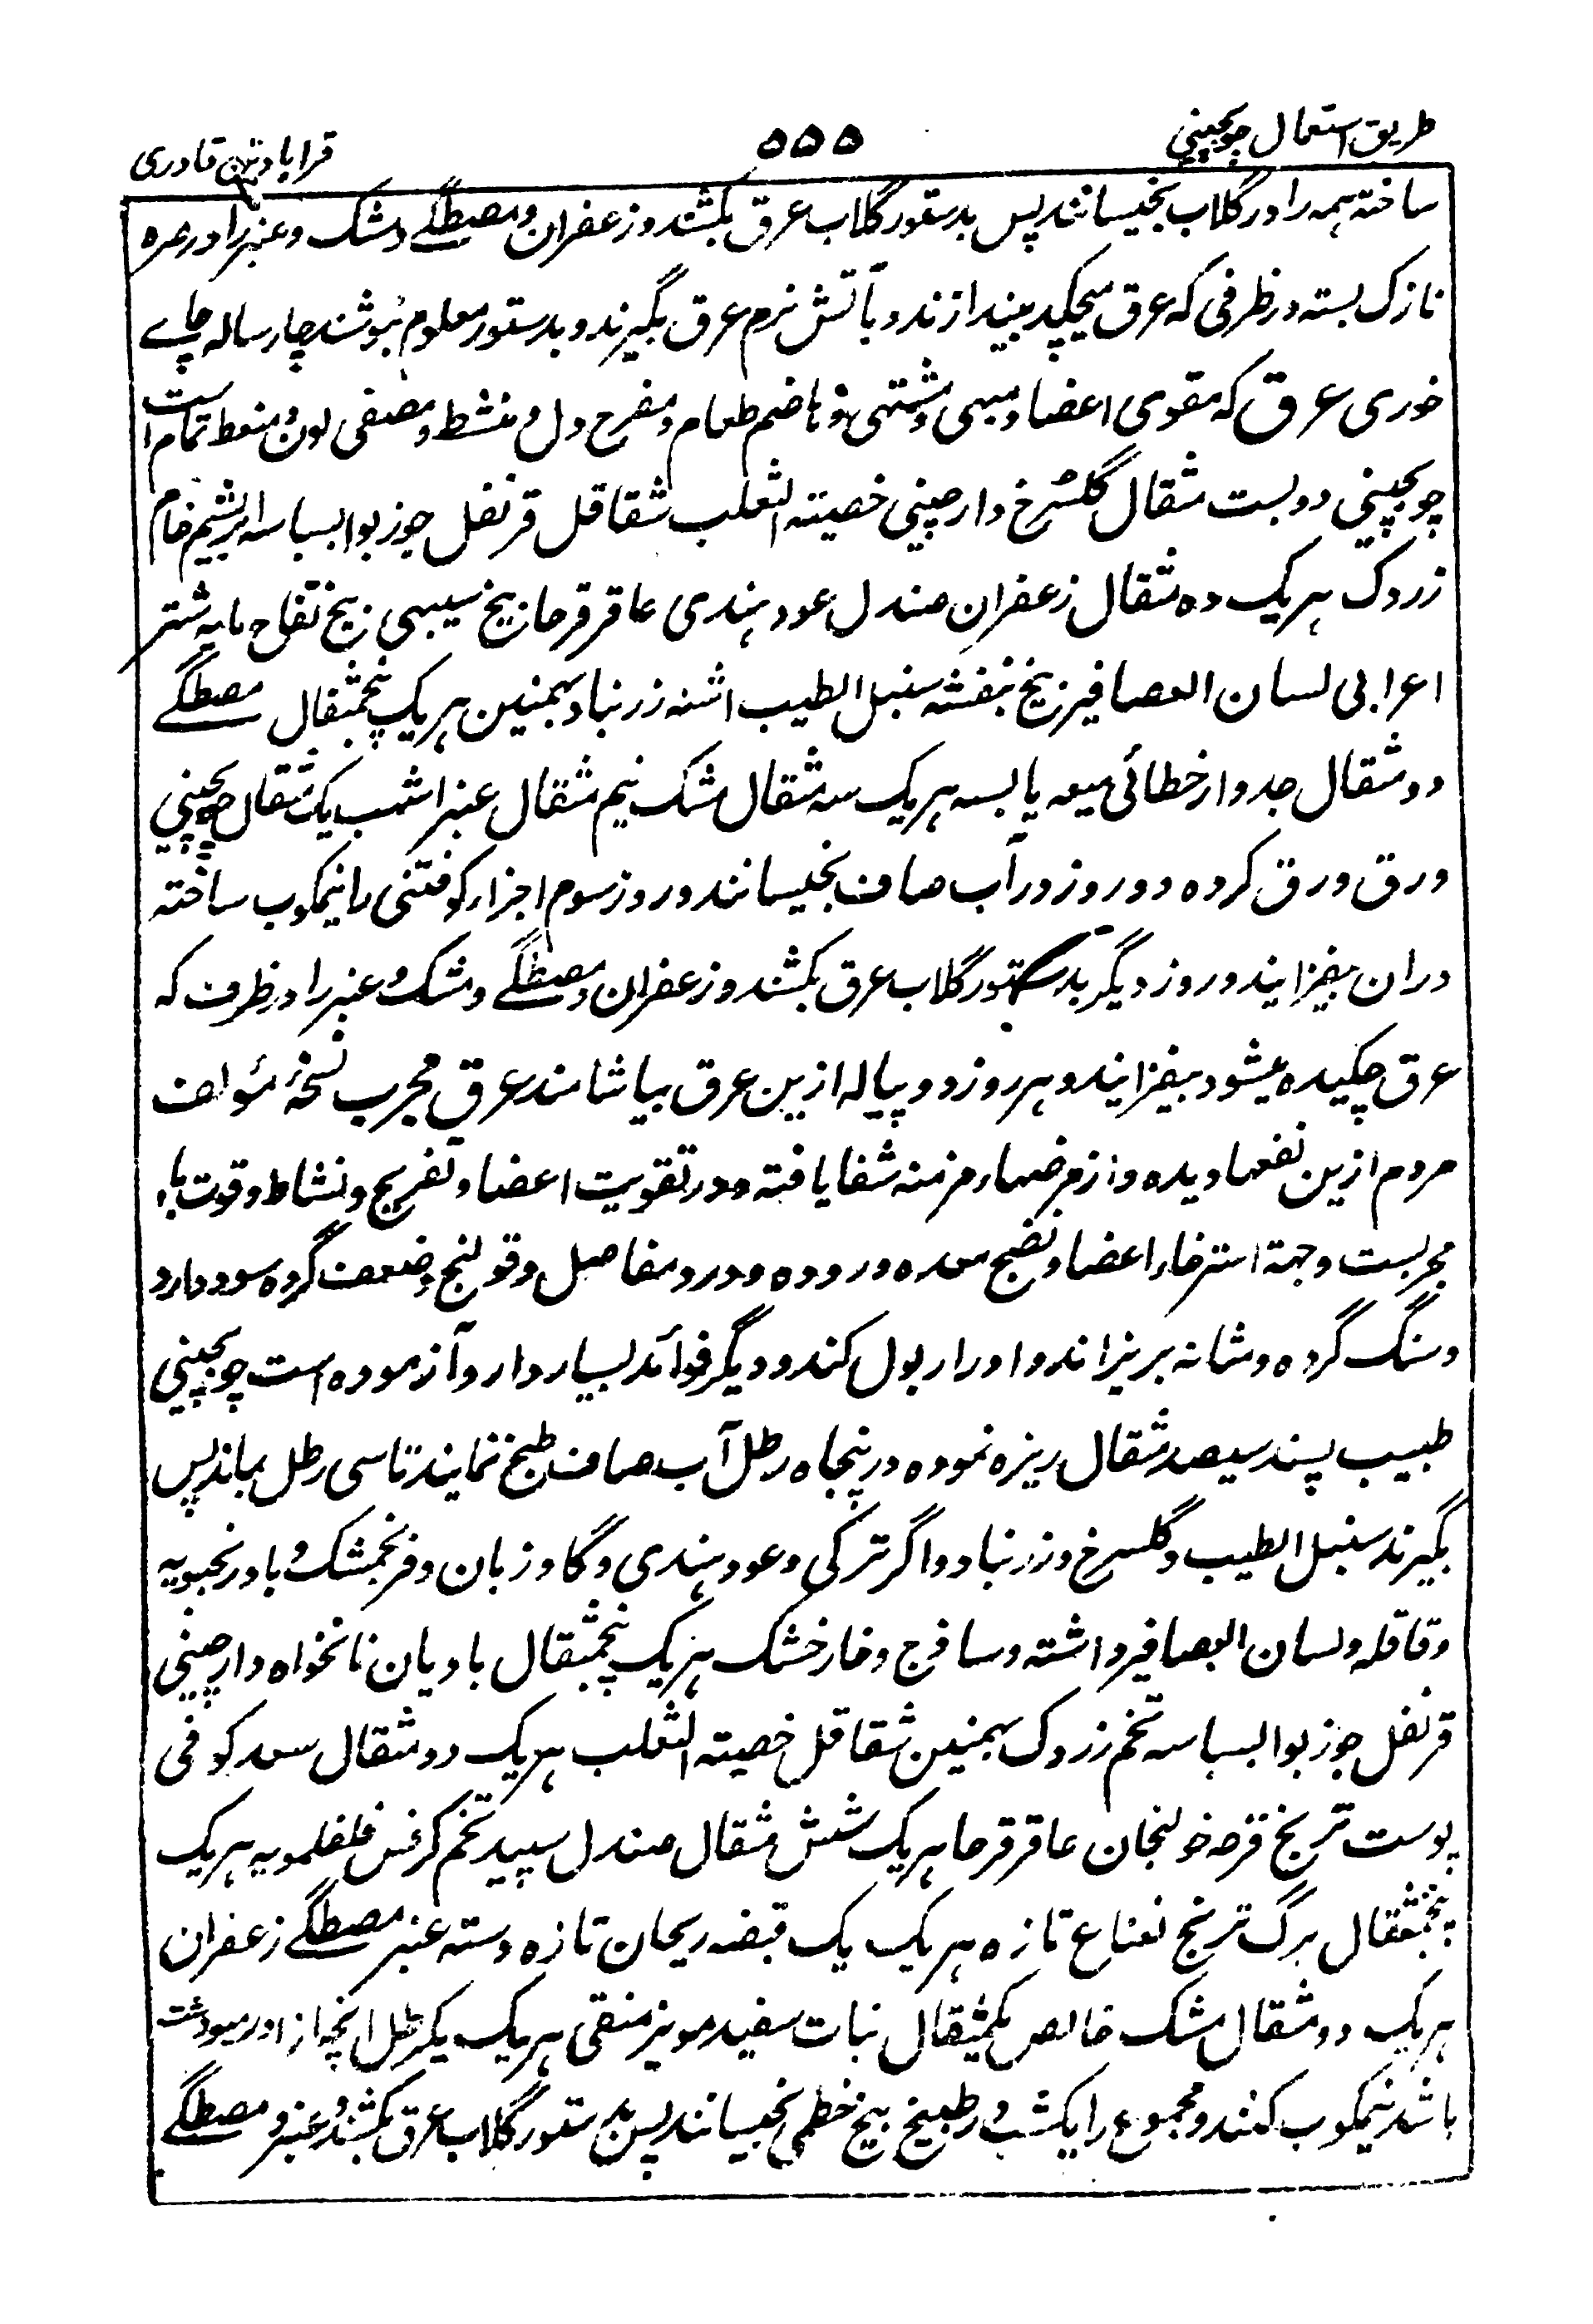 طریق استعمال چوبچینی ۵۵۵ قرابادین قادری
ساخته همه را در گلاب بخیسانند پس بدستور گلاب عرق بکشند و زعفران و مصطگے و مشک و عنبر را در صره
نازک بسته در ظرفی که عرق میچکد بیندازند و بآتش نرم عرق بگیرند و بدستور معلوم بنوشند چار ساله چاے
خوری عرق که مقوی اعضا و مبهی و مشتهی و هاضم طعام و مفرح دل و منشط و مصفی لون و منعظ تمام است
چوبچینی دوبست مثقال گلسرخ دارچینی خصیته الثعلب شقاقل قرنفل جوزبوا بسباسه ابریشم خام
زردک هریک ده مثقال زعفران صندل عود هندی عاقرقرحا بیخ سیبی بیخ تفاح مایه شتر
اعرابی لسان العصافیر بیخ بنفشه سنبل الطیب اشنه زرنباد بهمنین هریک پنجمثقال مصطگے
دو مثقال جدوار خطائی میعه یابسه هریک سه مثقال مشک نیم مثقال عنبر اشهب یک مثقال چوبچینی
ورق ورق کرده دو روز در آب صاف بخیسانند و روز سوم اجزاء کوفتنی را نیمکوب ساخته
دران بیفزایند و روز دیگر بدستور گلاب عرق بکشند و زعفران و مصطگے و مشک و عنبر را در ظرف که
عرق چکیده میشود بیفزایند و هر روز دو پیاله ازین عرق بیاشامند عرق مجرب نسخهٔ مؤلف
مردم ازین نفعها دیده و از مرضهاء مزمنه شفا یافته و در تقویت اعضا و تفریح و نشاط و قوت باه
مجربست و جهة استرخاء اعضا و نضج معده و روده و درد مفاصل و قولنج و ضعف گرده سود دارد
و سنگ گرده و مثانه بریزاند و ادرار بول کند و دیگر فوائد بسیار دارد و آزموده است چوبچینی
طبیب پسند سیصد مثقال ریزه نموده در پنجاه رطل آب صاف طبخ نمایند تا سی رطل بماند پس
بگیرند سنبل الطیب و گلسرخ و زرنباد و اگر ترکی و عود هندی و گاوزبان و فرنجمشک و بادرنجبویه
و قاقله و لسان العصافیر و اشنه و ساذج و خارخشک هریک پنجمثقال بادیان نانخواه دارچینی
قرنفل جوزبوا بسباسه تخم زردک بهمنین شقاقل خصیته الثعلب هریک دو مثقال سعد کوفی
پوست ترنج قرفه خولنجان عاقرقرحا هریک شش مثقال صندل سپید تخم کرفس فلفلمویه هریک
پنجمثقال برگ ترنج نعناع تازه هریک یک قبضه ریحان تازه دسته عنبر مصطگے زعفران
هریک دو مثقال مشک خالص یکمثقال نبات سفید مویز منقی هریک یکرطل انچه از ادویه
باشد نیمکوب کنند و مجموع را یکشب در طبیخ بیخ خطمی بخیسانند پس بدستور گلاب عرق بکشند و عنبر و مصطگے